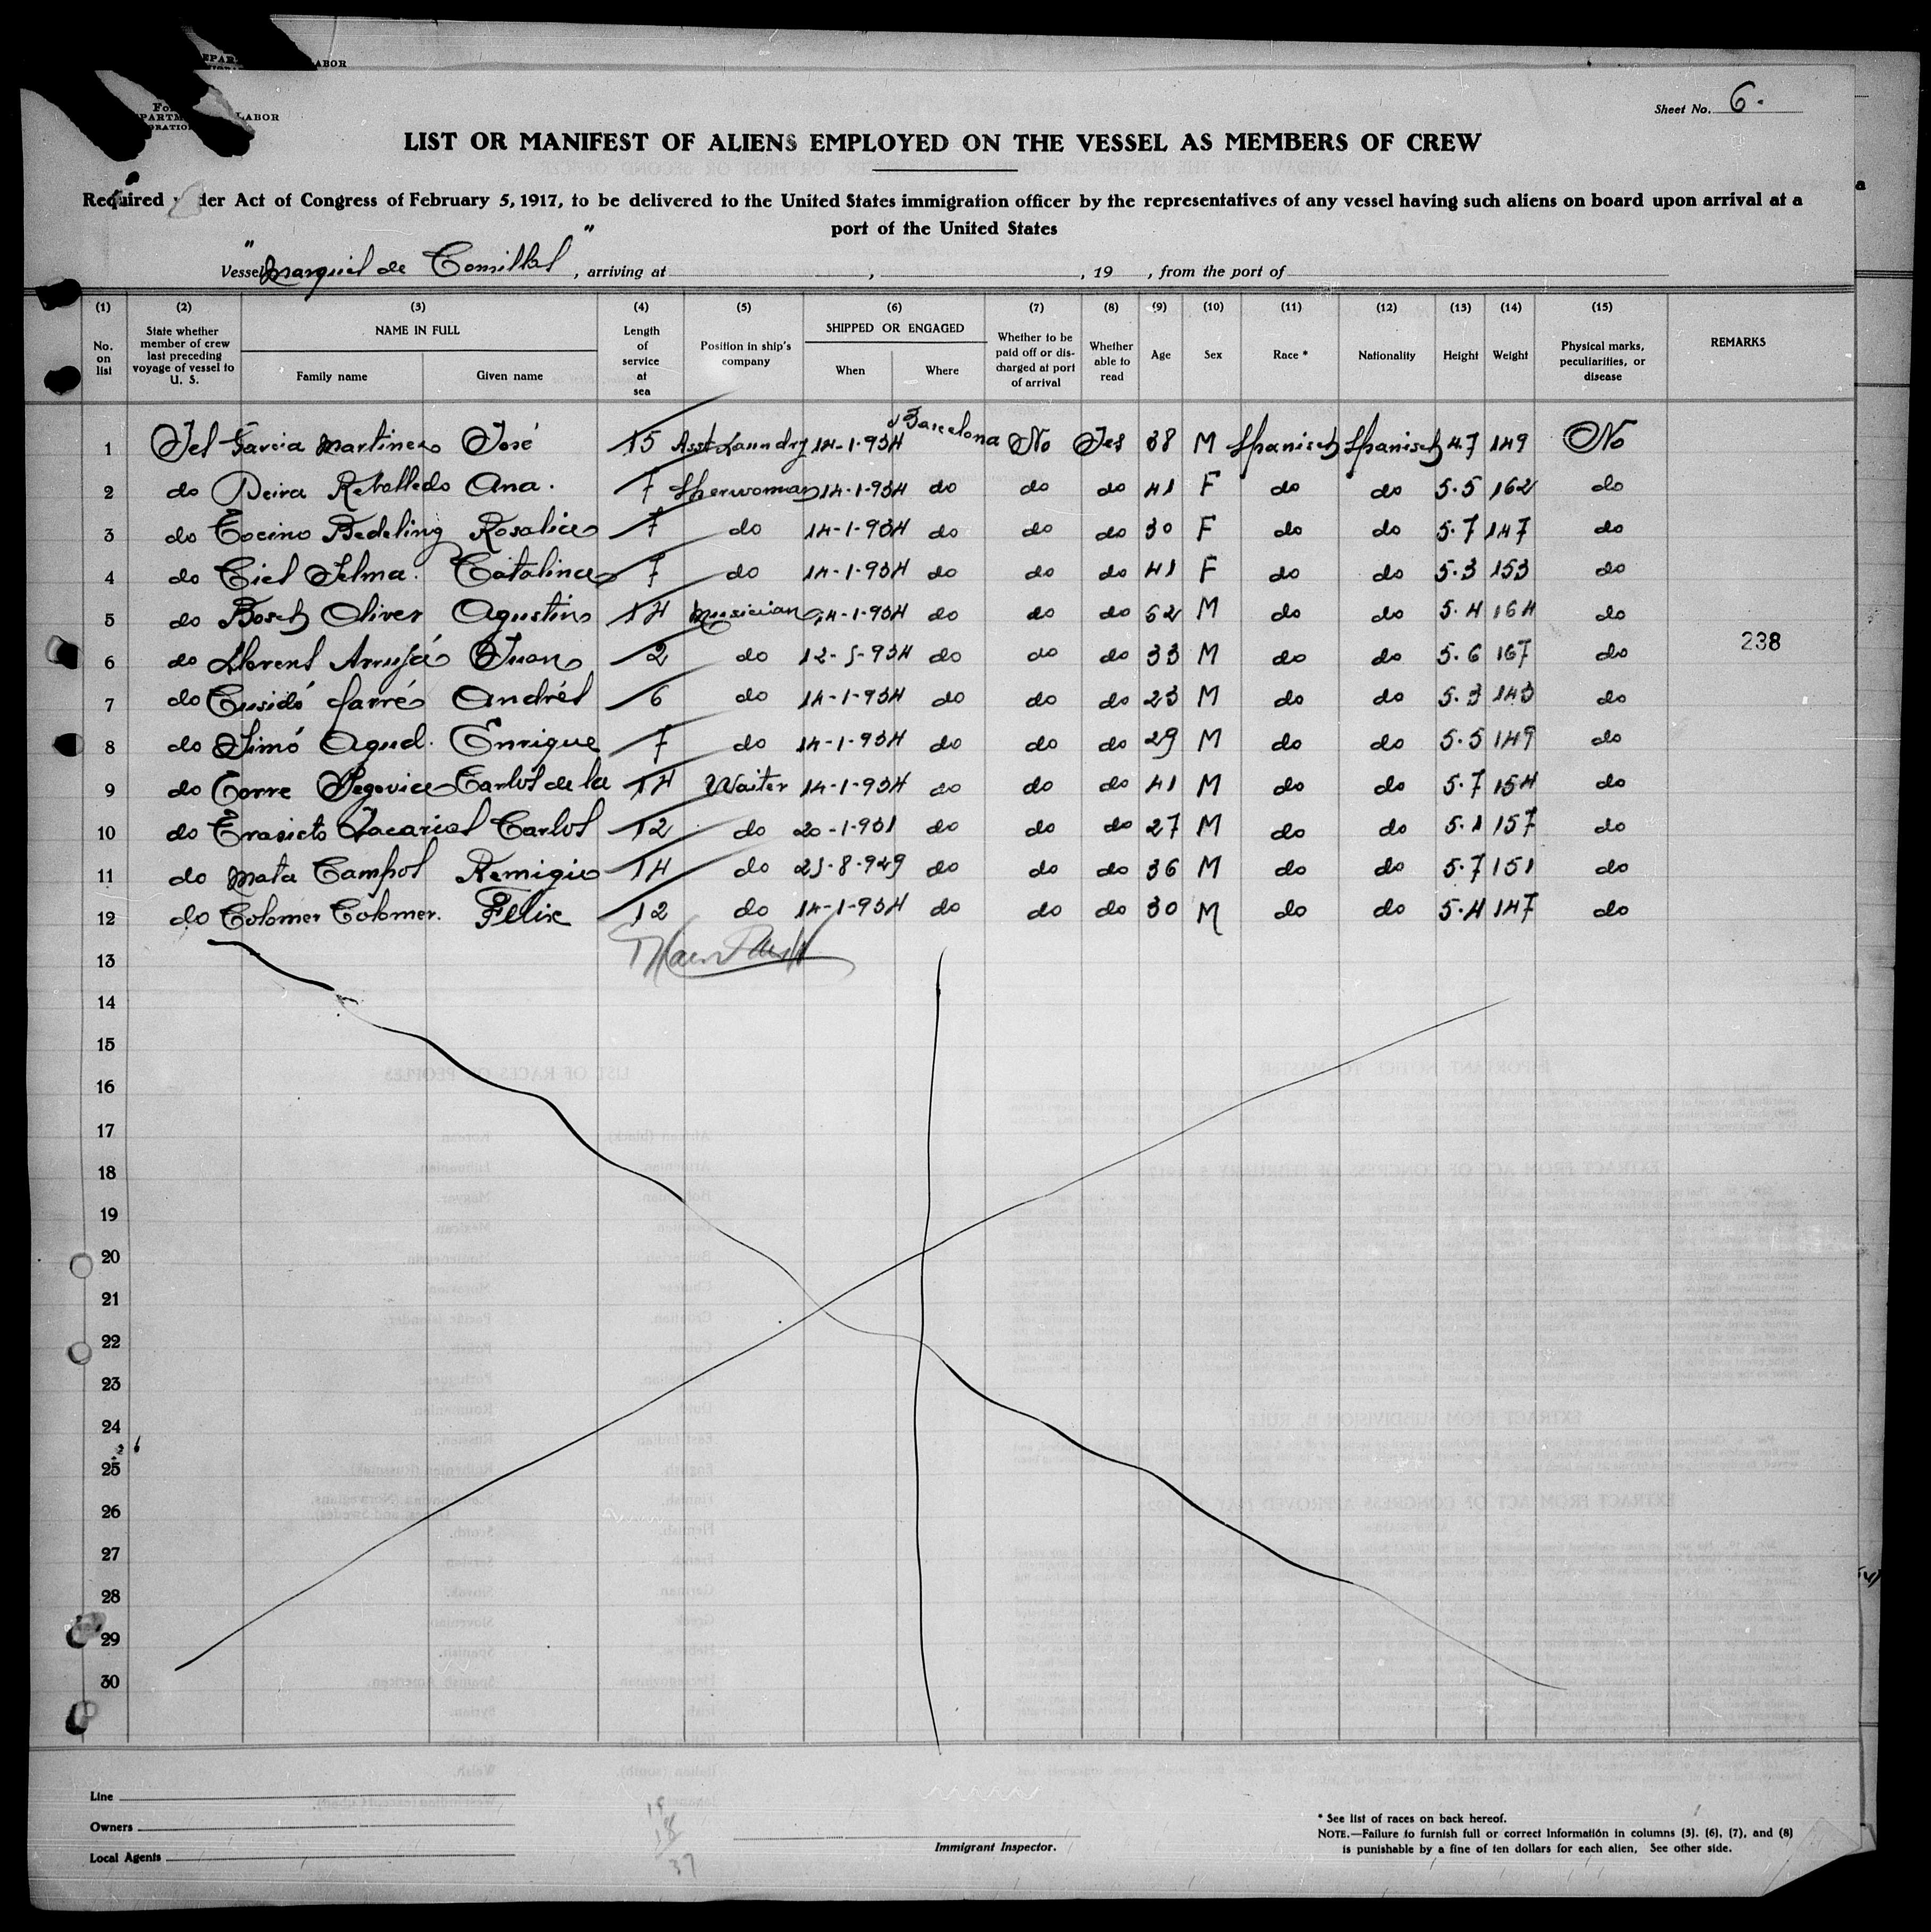 EPAR ABOR
For
PARTM LABOR
ORATION
Sheet No. 6.
LIST OR MANIFEST OF ALIENS EMPLOYED ON THE VESSEL AS MEMBERS OF CREW
Required der Act of Congress of February 5, 1917, to be delivered to the United States immigration officer by the representatives of any vessel having such aliens on board upon arrival at a
port of the United States
Vessel "Marqués de Comillas", arriving at , , 19 , from the port of
(1) (2) (3) (4) (5) (6) (7) (8) (9) (10) (11) (12) (13) (14) (15)
No. on list State whether member of crew last preceding voyage of vessel to U. S. NAME IN FULL Length of service at sea Position in ship's company SHIPPED OR ENGAGED Whether to be paid off or discharged at port of arrival Whether able to read Age Sex Race * Nationality Height Weight Physical marks, peculiarities, or disease REMARKS
Family name Given name When Where
1 Yes Garcia Martinez José 15 Asst Laundry 14-1-934 Barcelona No Yes 38 M Spanisch Spanisch 4.7 149 No
2 do Rebolledo Ana. 7 14-1-934 do do do 41 F do do 5.5 162 do
3 do Tocino Rosalia 7 do 14-1-934 do do do 30 F do do 5.7 147 do
4 do Selma. Catalina 7 do 14-1-934 do do do 41 F do do 5.3 153 do
5 do Bosch Oliver Agustin 14 Musician 14-1-934 do do do 52 M do do 5.4 164 do
6 do Llorens Juan 2 do 12-5-934 do do do 33 M do do 5.6 167 do
238
7 do Cusidó Andrés 6 do 14-1-934 do do do 23 M do do 5.3 143 do
8 do Simó Enrique 7 do 14-1-934 do do do 29 M do do 5.5 149 do
9 do Torre Segovia Carlos de la 14 Waiter 14-1-934 do do do 41 M do do 5.7 154 do
10 do Zacarias Carlos 12 do 20-1-931 do do do 27 M do do 5.1 157 do
11 do Mata Campos Remigio 14 do 25-8-929 do do do 36 M do do 5.7 151 do
12 do Colomer Colomer. Felix 12 do 14-1-934 do do do 30 M do do 5.4 147 do
13
14
15
16
17
18
19
20
21
22
23
24
25
26
27
28
29
30
Line
Owners
Local Agents
37
Immigrant Inspector.
* See list of races on back hereof.
NOTE.—Failure to furnish full or correct information in columns (3), (6), (7), and (8)
is punishable by a fine of ten dollars for each alien. See other side.